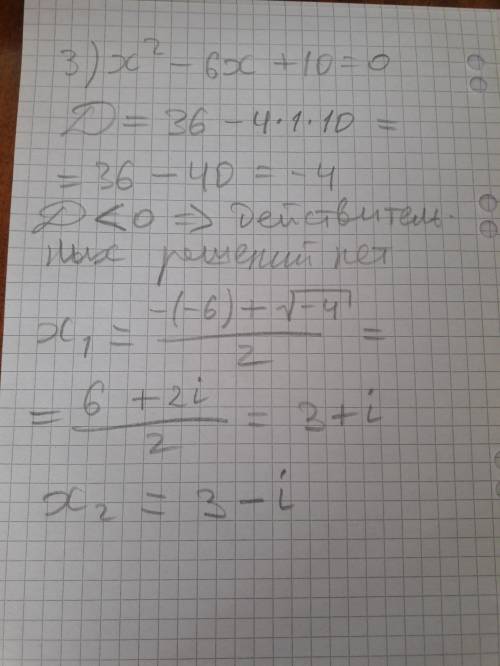 3) x² - 6x + 10 = 0
D = 36 - 4·1·10 =
= 36 - 40 = -4
D < 0 ⇒ действитель-
ных решений нет
x₁ = (-(-6) + √-4) / 2 =
= (6 + 2i) / 2 = 3 + i
x₂ = 3 - i